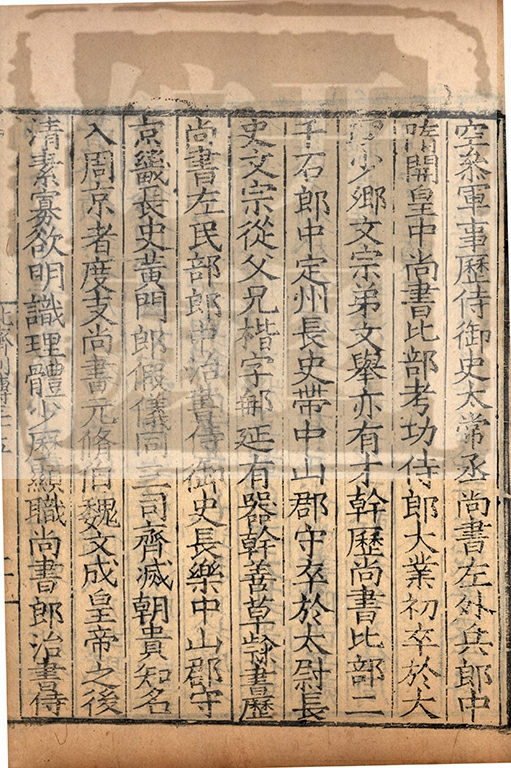 空叅軍事歷侍御史太常丞尚書左外兵郎中
隋開皇中尚書比部考功侍郎大業初卒於大
理少卿文宗弟文舉亦有才幹歷尚書比部二
千石郎中定州長史帶中山郡守卒於太尉長
史文宗從父兄楷字那延有器幹善草隸書歷
尚書左民部郎中治書侍御史長樂中山郡守
京畿長史黃門郎假儀同三司齊滅朝貴知名
入周京者度支尚書元脩伯魏文成皇帝之後
清素寡欲明識理體少歷顯職尚書郎治書侍
北齊列傳三十五